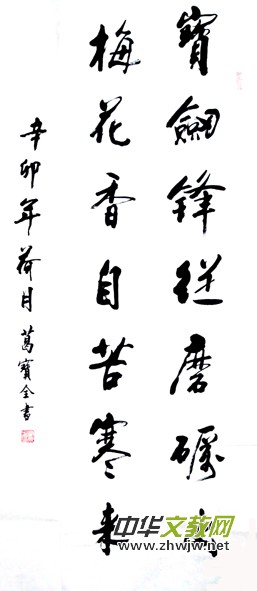 寶劔鋒從磨礪出
梅花香自苦寒來
辛卯年荷月葛寶全書
中华文教网
www.zhwjw.net